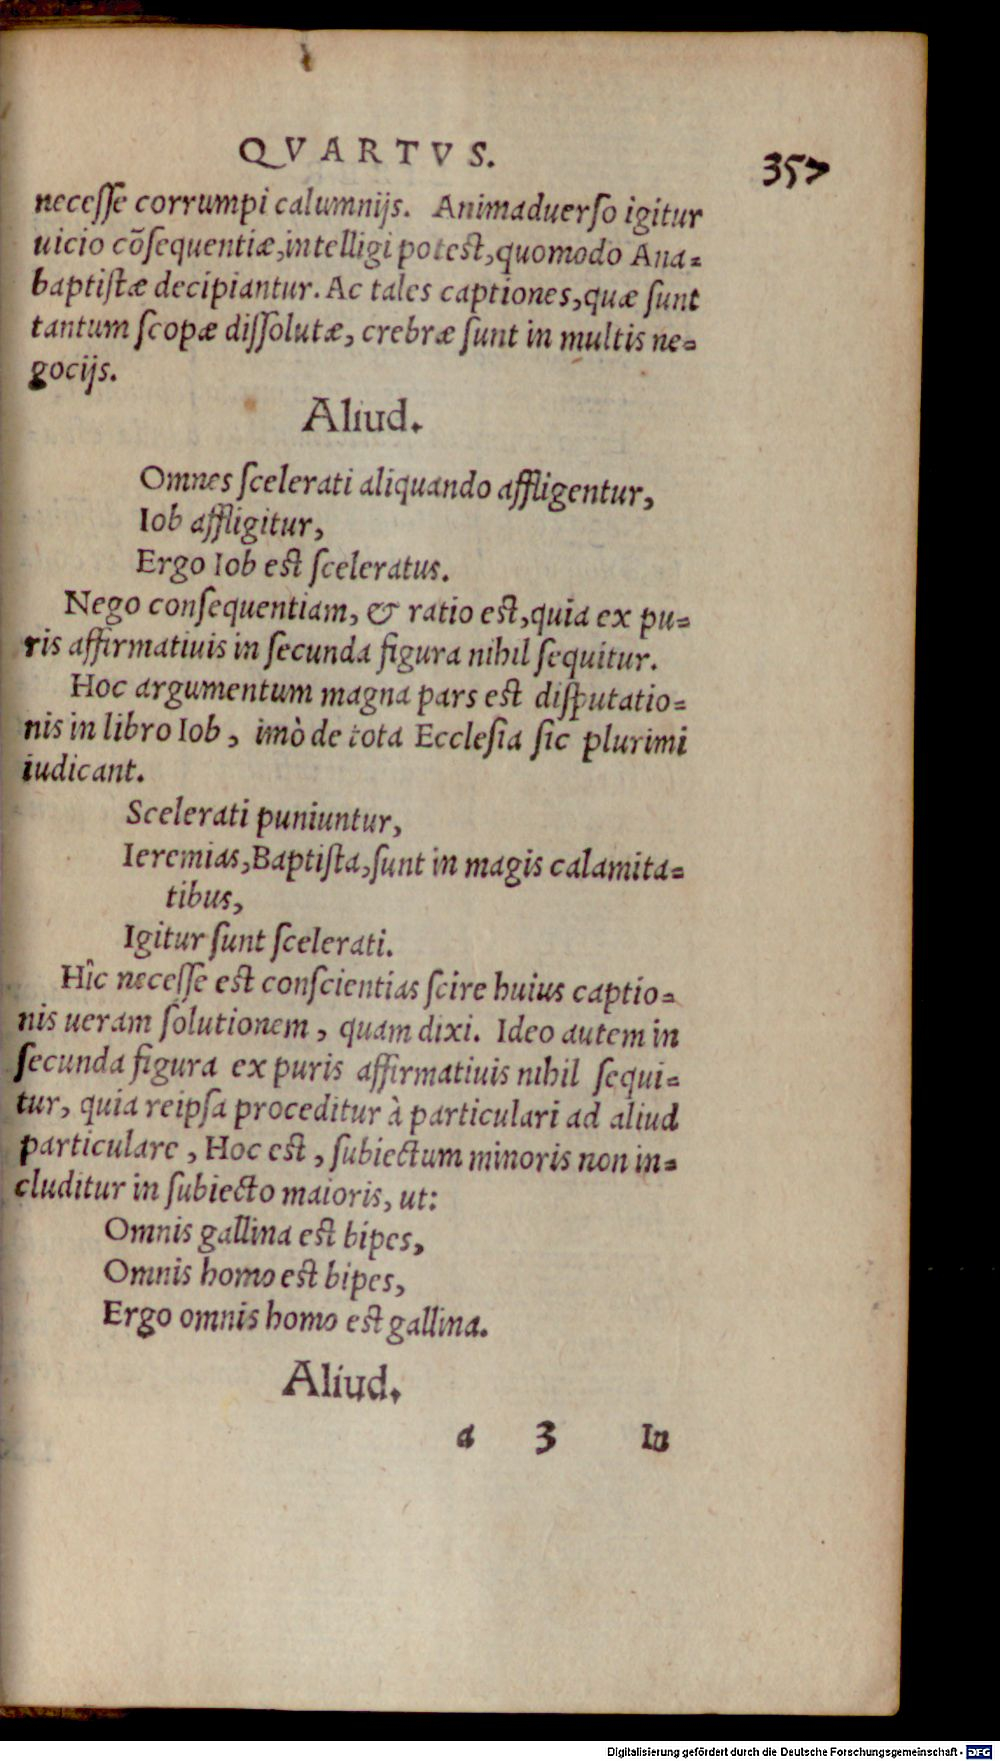 QVARTVS.
357
necesse corrumpi calumnijs. Animaduerso igitur
uicio cõsequentiæ, intelligi potest, quomodo Ana-
baptistæ decipiantur. Ac tales captiones, quæ sunt
tantum scopæ dissolutæ, crebræ sunt in multis ne-
gocijs.
Aliud.
Omnes scelerati aliquando affligentur,
Iob affligitur,
Ergo Iob est sceleratus.
Nego consequentiam, & ratio est, quia ex pu-
ris affirmatiuis in secunda figura nihil sequitur.
Hoc argumentum magna pars est disputatio-
nis in libro Iob, imò de tota Ecclesia sic plurimi
iudicant.
Scelerati puniuntur,
Ieremias, Baptista, sunt in magis calamita-
tibus,
Igitur sunt scelerati.
Hîc necesse est conscientias scire huius captio-
nis ueram solutionem, quam dixi. Ideo autem in
secunda figura ex puris affirmatiuis nihil sequi-
tur, quia reipsa proceditur à particulari ad aliud
particulare, Hoc est, subiectum minoris non in-
cluditur in subiecto maioris, ut:
Omnis gallina est bipes,
Omnis homo est bipes,
Ergo omnis homo est gallina.
Aliud.
a 3 In
Digitalisierung gefördert durch die Deutsche Forschungsgemeinschaft - DFG